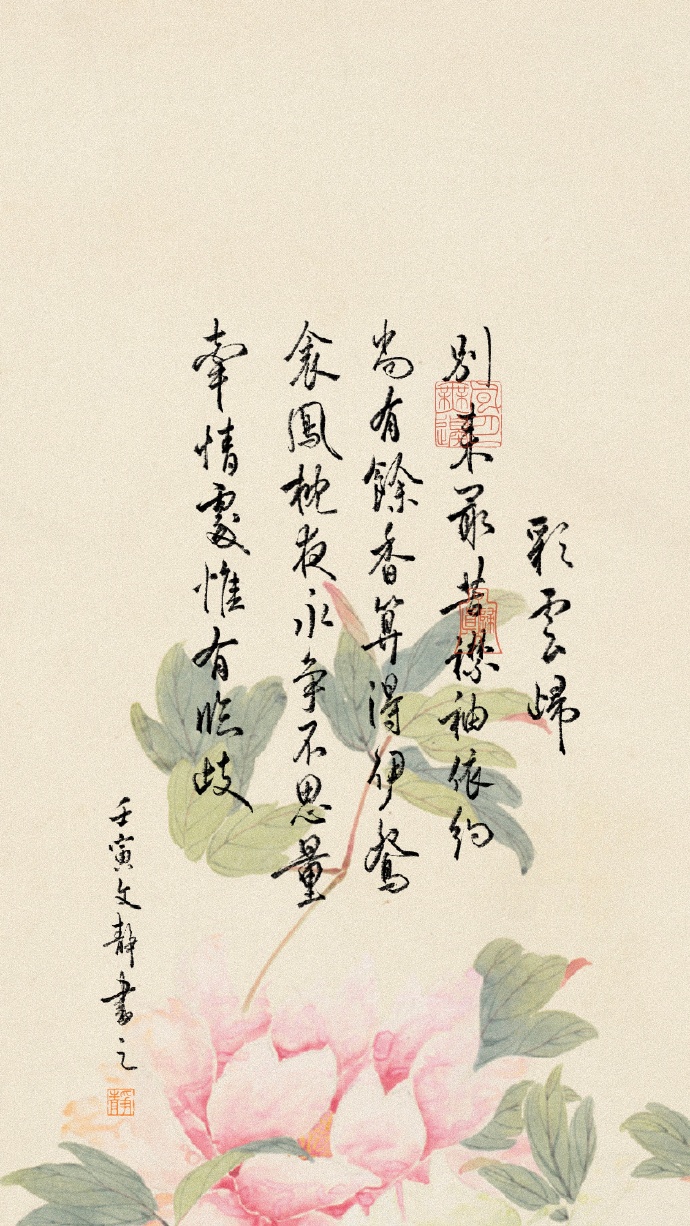 彩雲歸
別來最苦襟袖依約
尚有餘香算得伊鴛
衾鳳枕夜永爭不思量
牽情處惟有臨歧
壬寅文靜書之
靜